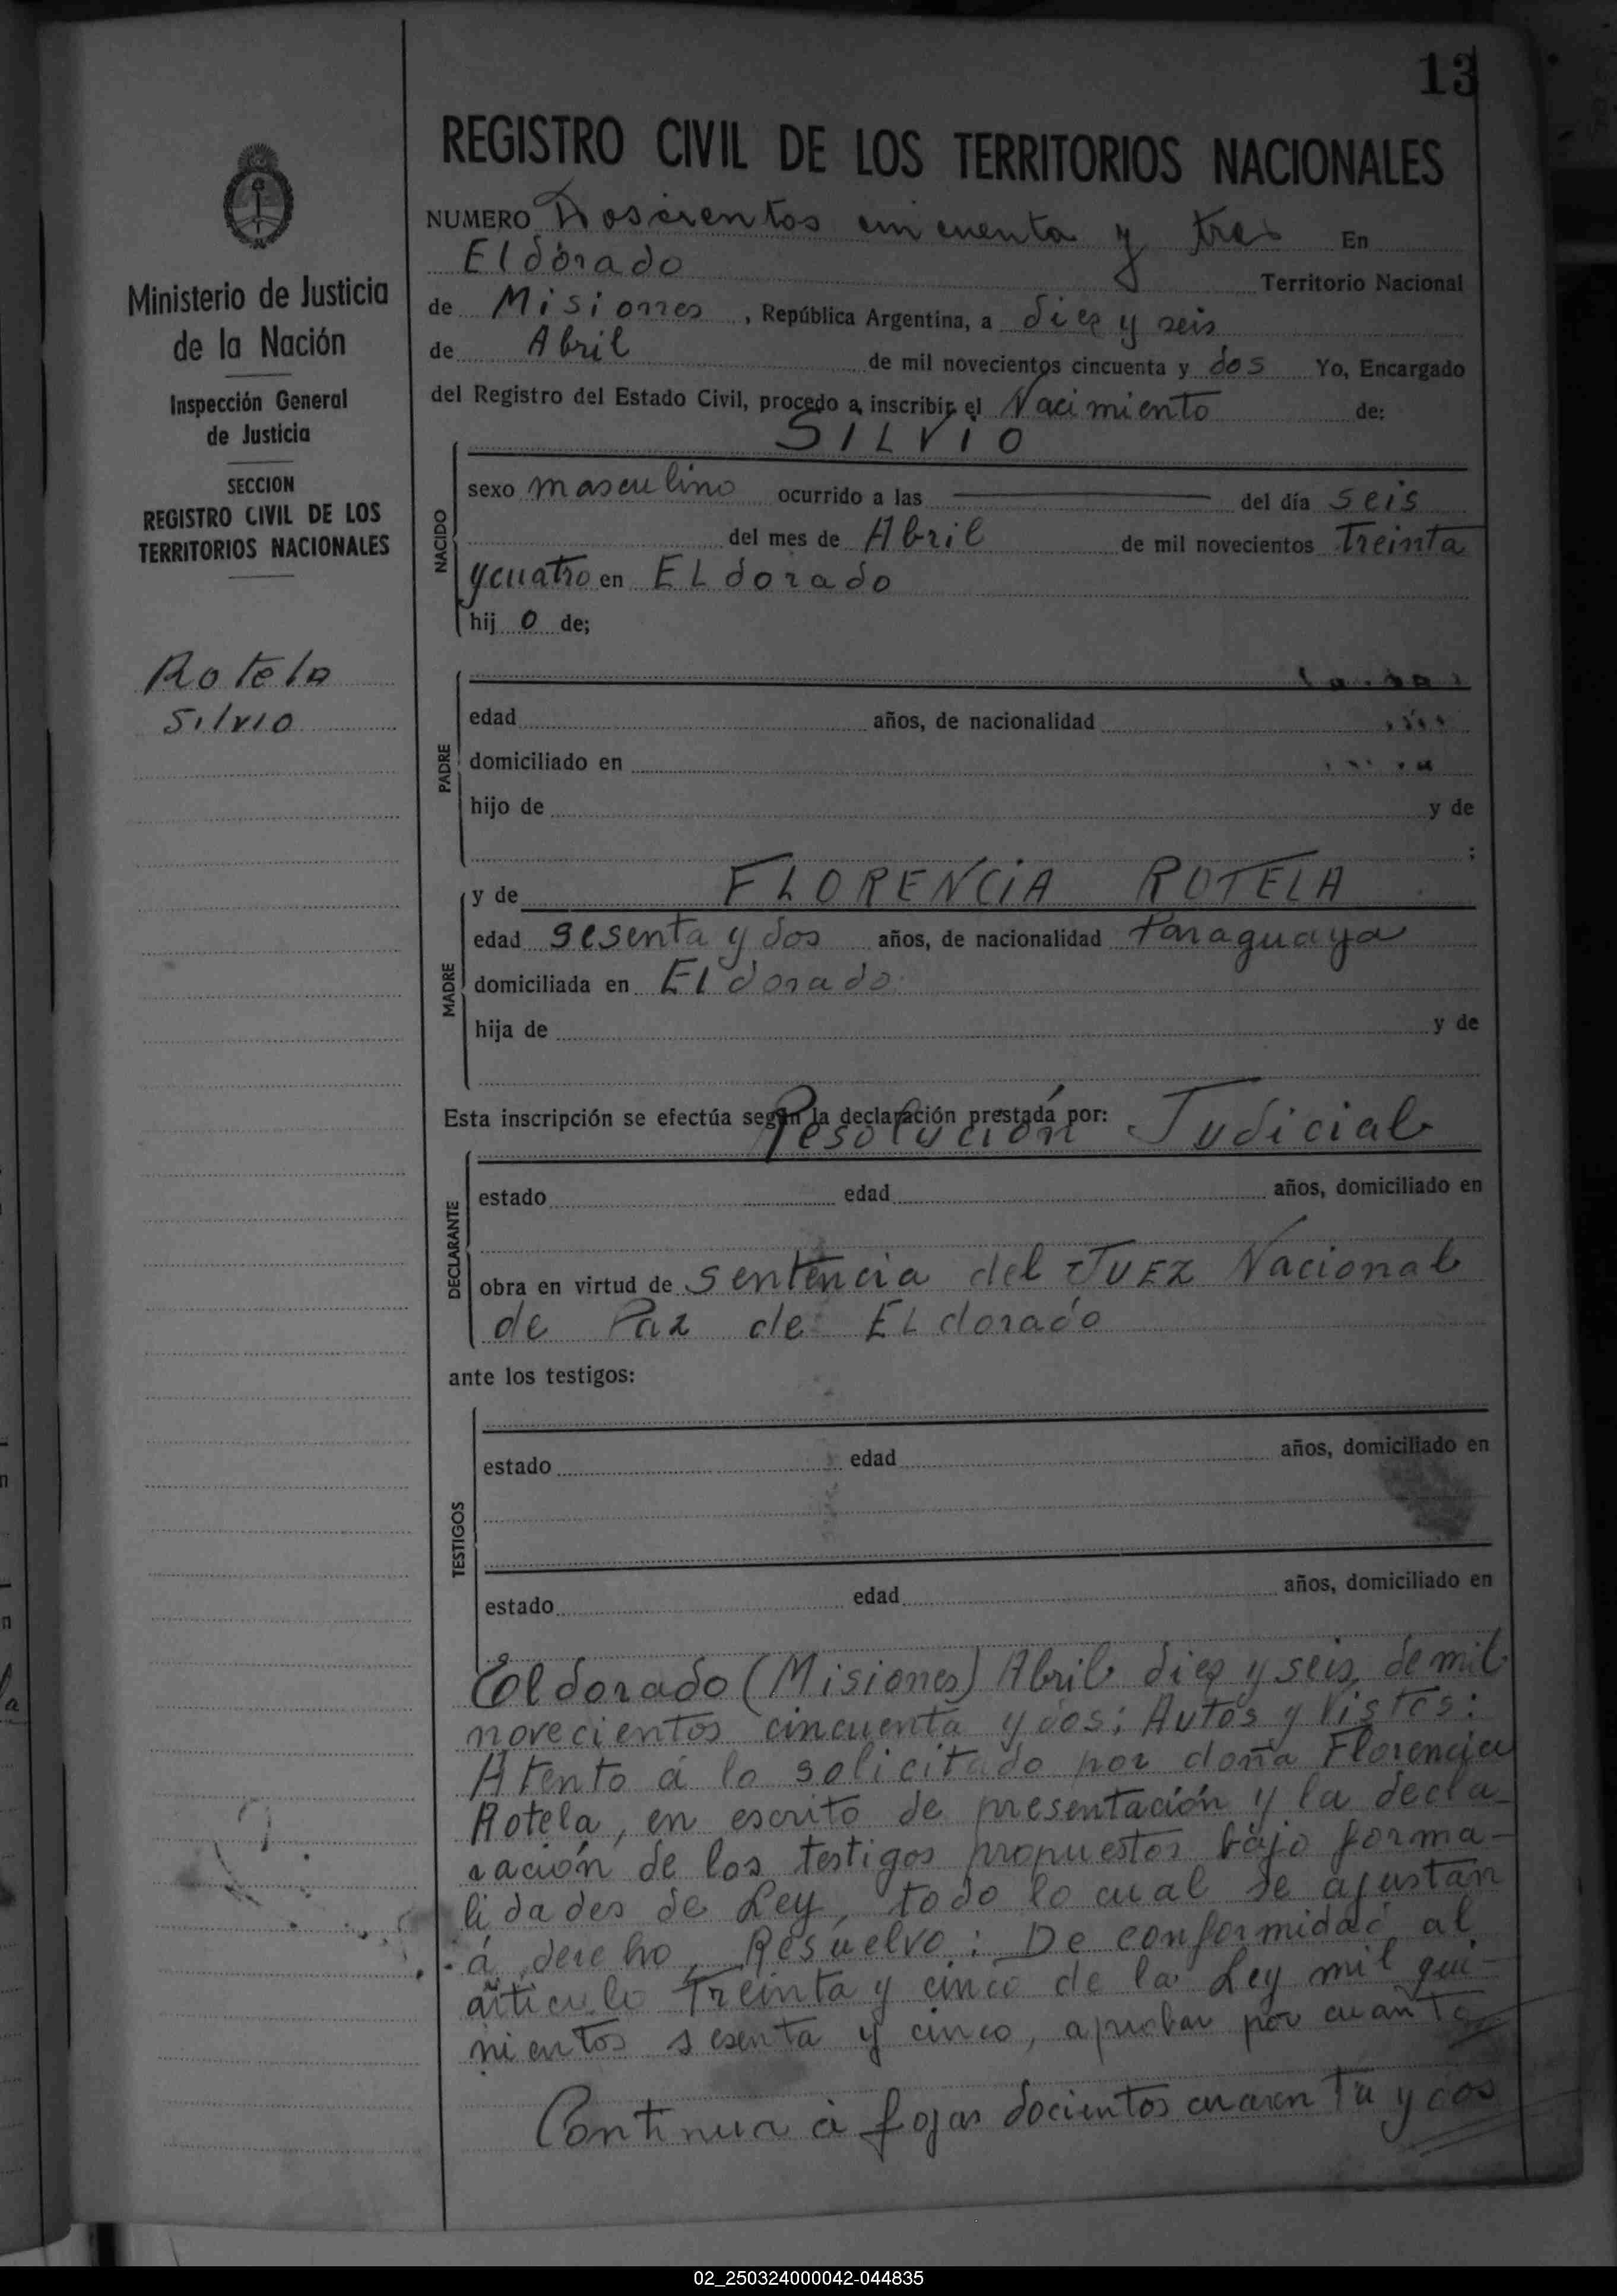 13
REGISTRO CIVIL DE LOS TERRITORIOS NACIONALES
Ministerio de Justicia
de la Nación
Inspección General
de Justicia
SECCION
REGISTRO CIVIL DE LOS
TERRITORIOS NACIONALES
Rotela
Silvio
NUMERO Doscientos cincuenta y tres En
Eldorado Territorio Nacional
de Misiones, República Argentina, a diez y seis
de Abril de mil novecientos cincuenta y dos Yo, Encargado
del Registro del Estado Civil, procedo a inscribir el Nacimiento de:
SILVIO
NACIDO
sexo masculino ocurrido a las del día seis
del mes de Abril de mil novecientos Treinta
y cuatro en ELdorado
hij o de;
PADRE
edad años, de nacionalidad
domiciliado en
hijo de y de
;
MADRE
y de FLORENCIA ROTELA
edad sesenta y dos años, de nacionalidad Paraguaya
domiciliada en Eldorado
hija de y de
Esta inscripción se efectúa según la declaración prestada por:
Resolución Judicial
DECLARANTE
estado edad años, domiciliado en
obra en virtud de sentencia del JUEZ Nacional
de Paz de ELdorado
ante los testigos:
TESTIGOS
estado edad años, domiciliado en
estado edad años, domiciliado en
Eldorado (Misiones) Abril diez y seis, de mil
novecientos cincuenta y dos; Autos y Vistos:
Atento á lo solicitado por doña Florencia
Rotela, en escrito de presentación y la decla-
ración de los testigos propuestos bajo forma-
lidades de Ley, todo lo cual se ajustan
á derecho, Resuelvo: De conformidad al
artículo Treinta y cinco de la Ley mil qui-
nientos sesenta y cinco, aprobar por cuanto
Continua á fojas docientos cuarenta y dos
02_250324000042-044835